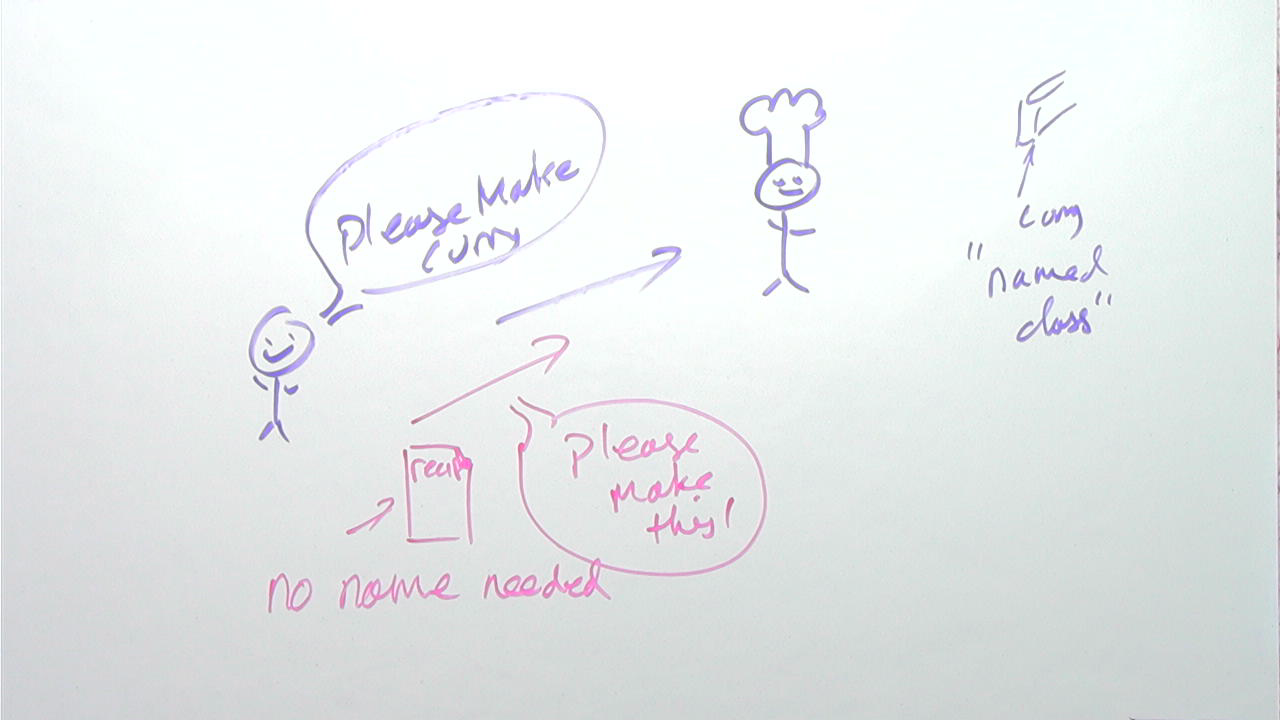 Please Make
curry
curry
"named
class"
recipe
Please
Make
this!
no name needed